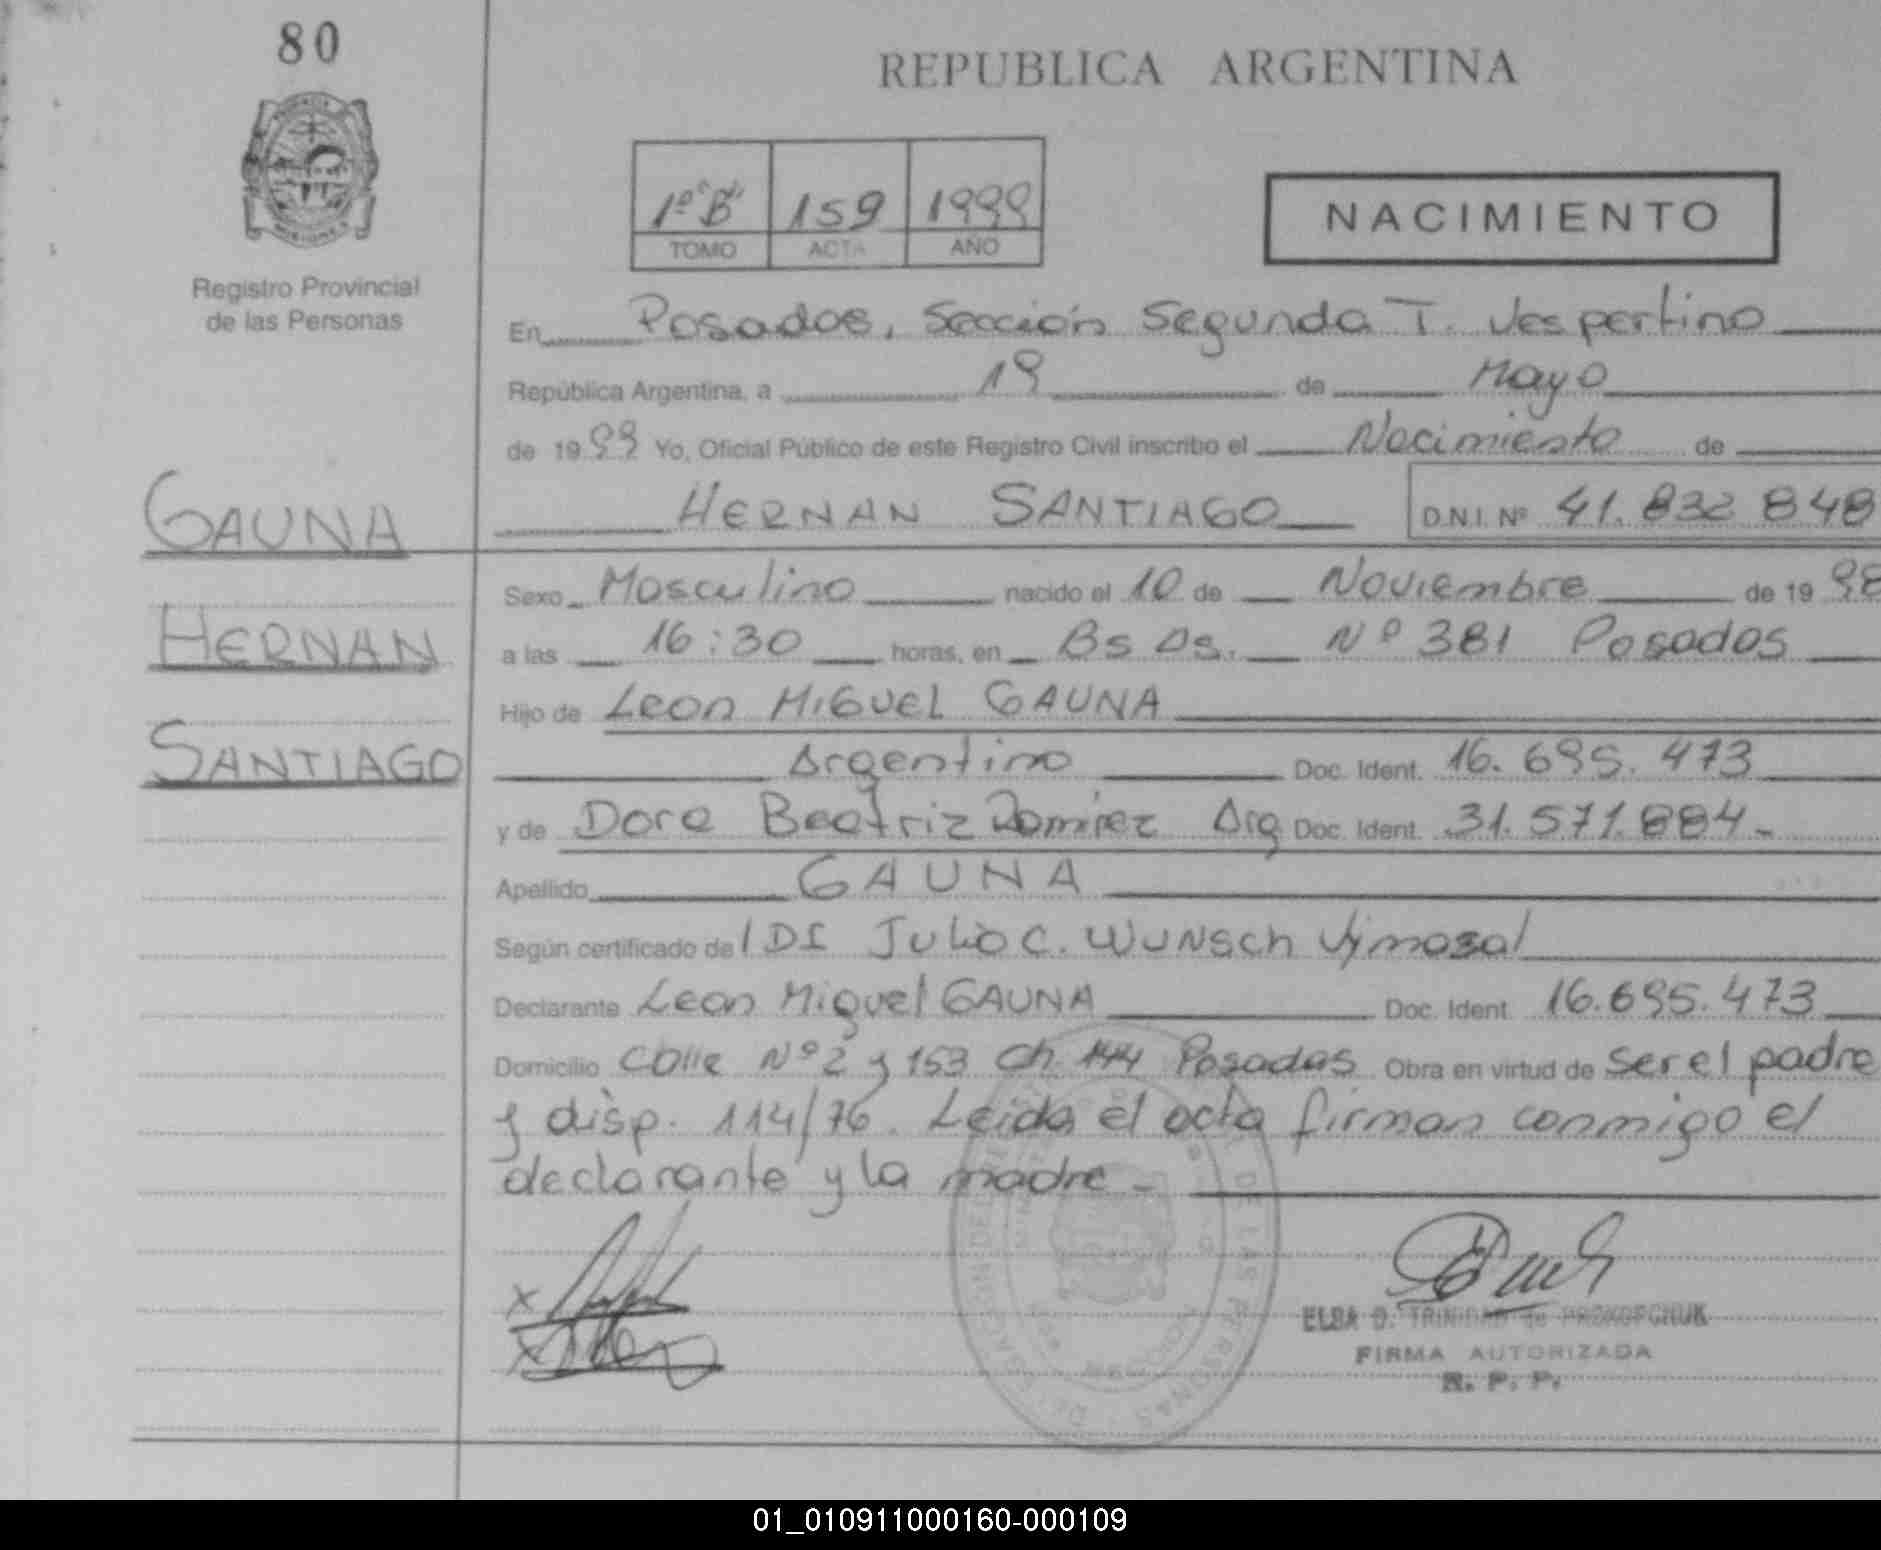 80
REPUBLICA ARGENTINA
1º "B" 159 1999
TOMO ACTA AÑO
NACIMIENTO
Registro Provincial
de las Personas
En Posadas, Sección Segunda T. Vespertino
República Argentina, a 19 de Mayo
de 1999 Yo, Oficial Público de este Registro Civil inscribo el Nacimiento de
GAUNA
HERNAN SANTIAGO D.N.I. Nº 41.832 848
Sexo Masculino nacido el 10 de Noviembre de 1998
HERNAN
a las 16:30 horas, en Bs As. Nº 381 Posadas
Hijo de Leon MIGUEL GAUNA
SANTIAGO
Argentino Doc. Ident. 16.695.473
y de Dora Beatriz Ramirez Arg Doc. Ident. 31.571.884-
Apellido GAUNA
Según certificado de Julio C. WUNSCH
Declarante Leon Miguel GAUNA Doc. Ident. 16.695.473
Domicilio Calle Nº 2 y 153 Ch. 144 Posadas Obra en virtud de ser el padre
y disp. 114/76. Leida el acta firman conmigo el
declarante y la madre-
ELBA D. TRINIDAD de PROKOPCHUK
FIRMA AUTORIZADA
R. P. P.
01_010911000160-000109